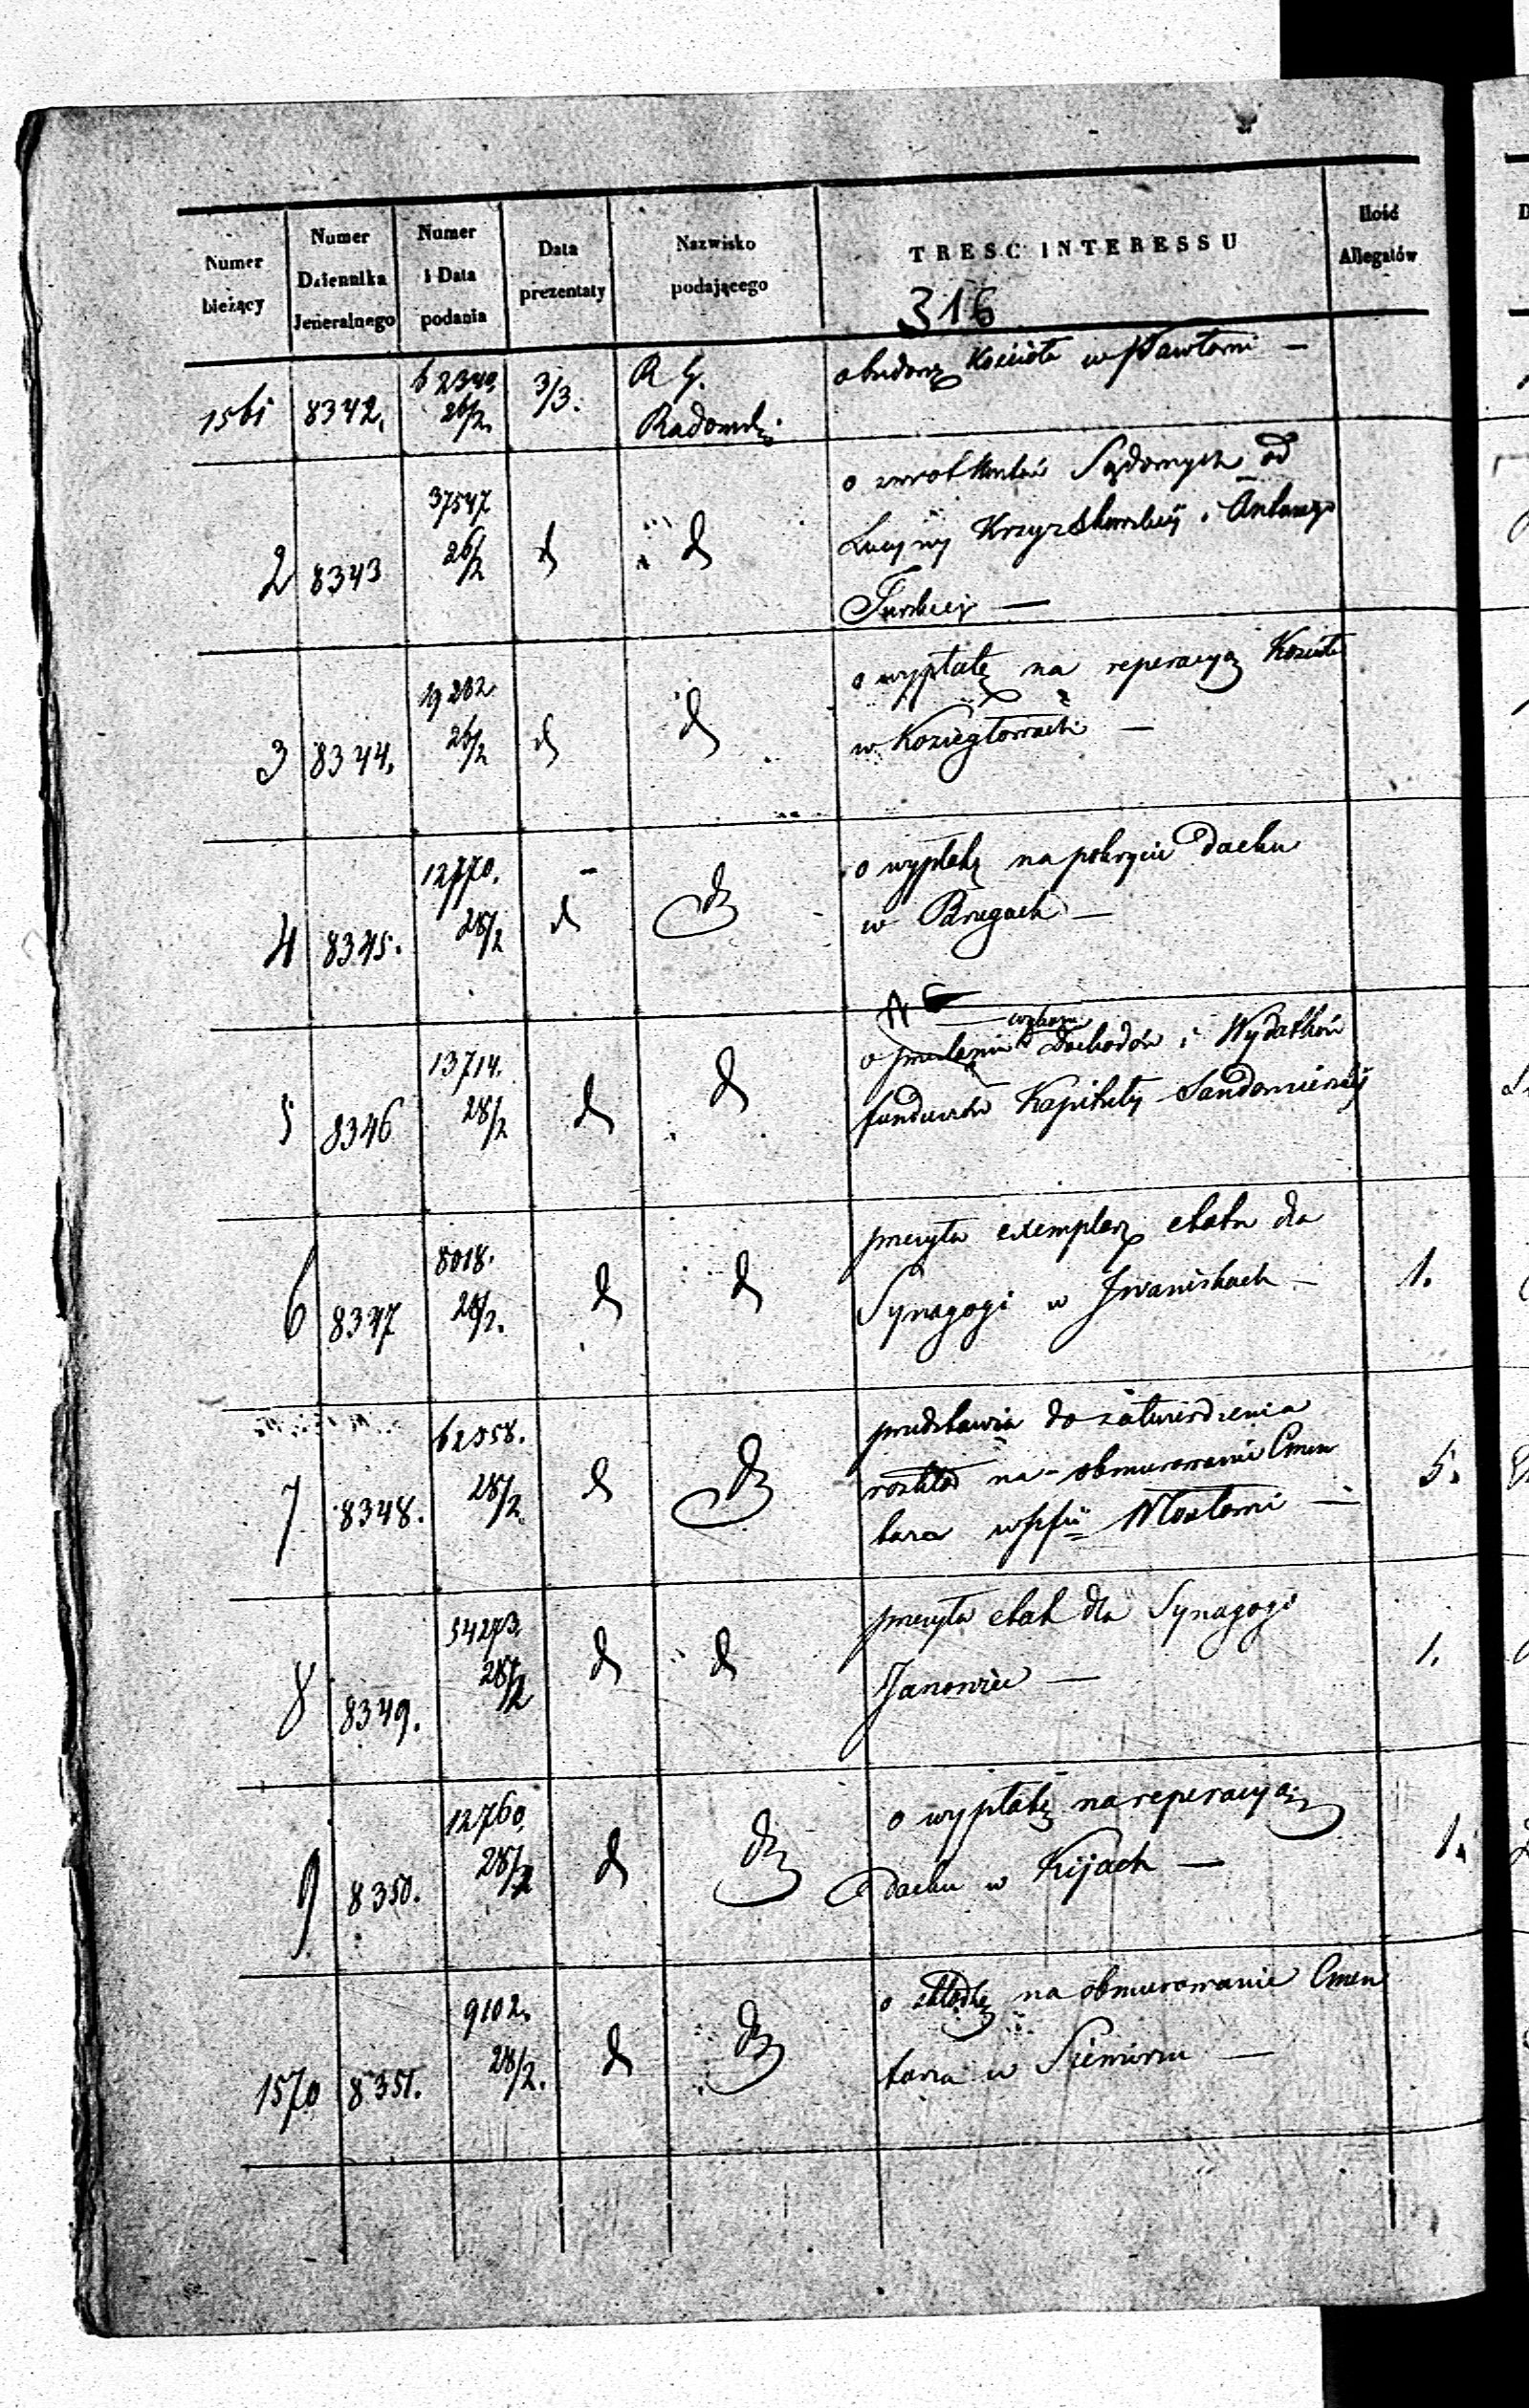 Numer bieżący
Numer Dziennika Jeneralnego
Numer i Data podania
Data prezentaty
Nazwisko podającego
TRESC INTERESSU
Ilość Allegatów
316
1561 8342. 62340. 26/2. 3/3. R G. Radomski
o budowę Kościoła w Pawłowie —
2 8343 37547 26/2 d d
o zwrot Kosztów Sądowych od
Lucyny i Antoniego
3 8344. 19202 26/2 d d
o wypłatę na reperacyą Kościoła
w Koziegłowach —
4 8345. 12770. 28/2 d d
o wypłatę na pokrycie dachu
w Brzegach —
5 8346 13714. 28/2 d d
o Dochodów i Wydatków
funduszów Kapituły Sandomierskiej
6 8347 8018. 28/2. d d
przesyła exemplarz etatu dla
Synagogi w Iwaniskach — 1.
7 8348. 62558. 28/2. d d
przedstawia do zatwierdzenia
rozkład na obmurowanie Cmen
tarza w 5.
8 8349. 54273. 28/2 d d
przesyła etat dla Synagogi
Janowiec — 1.
9 8350. 12760. 28/2 d d
o wypłatę na reperacyą
dachu w Kijach — 1.
1570 8351. 9102. 28/2. d d
o składkę na obmurowanie Cmen
tarza w —